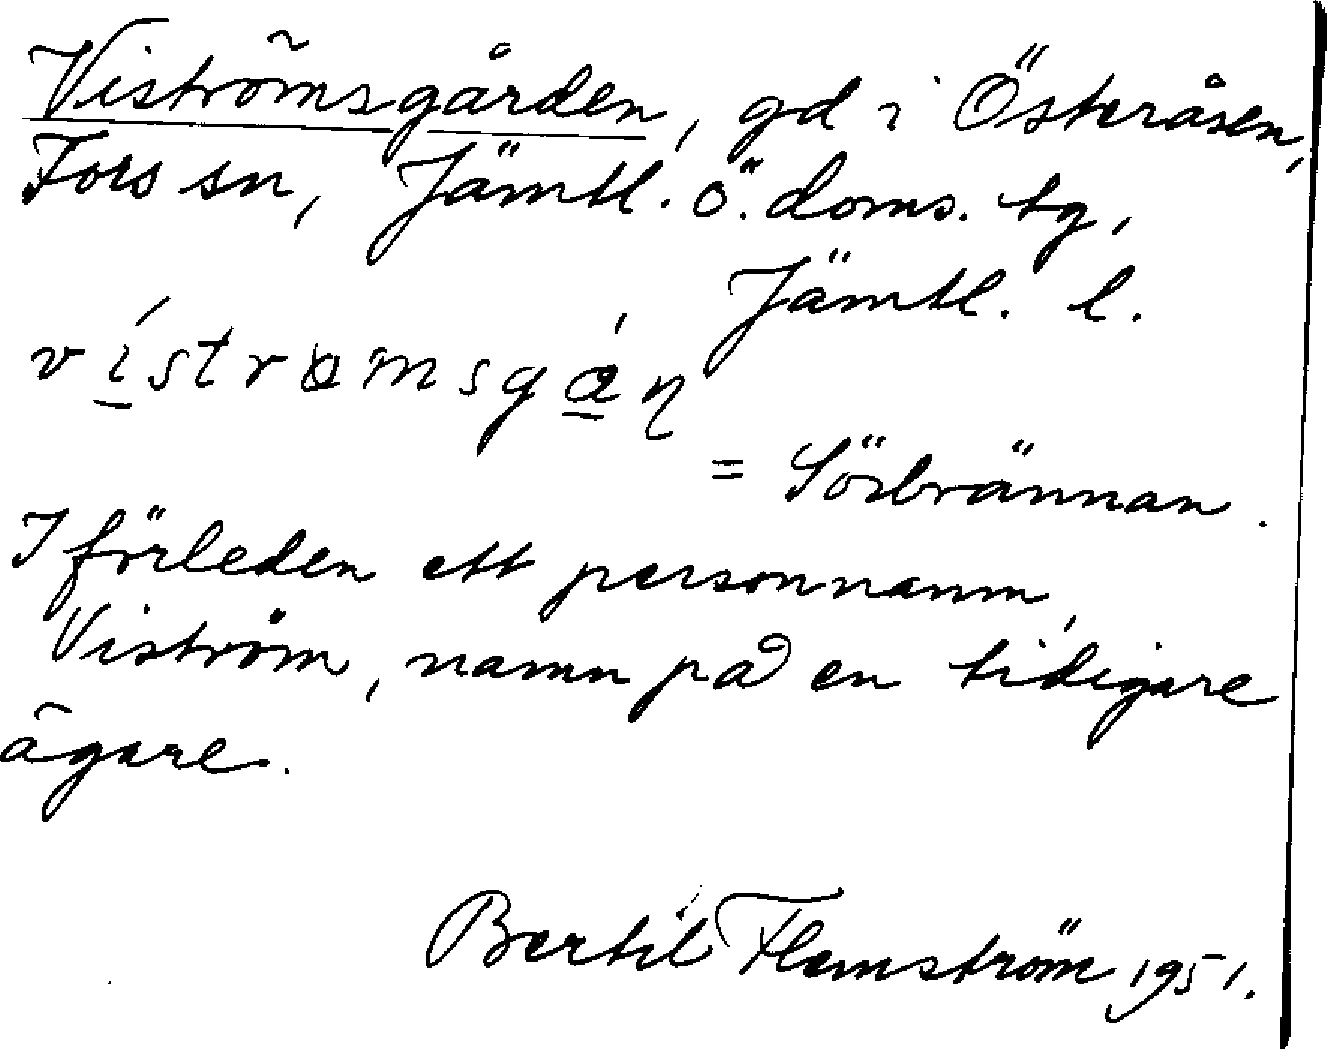 Viströmsgården, gd i Österåsen,
Fors sn, Jämtl. ö. doms. tg,
Jämtl. l.
= Sörbrännan.
I förleden ett personnamn,
Viström, namn på en tidigare
ägare.
Bertil Flemström 1951.